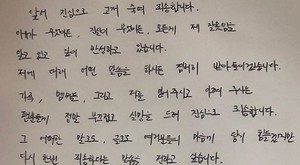 앞서 진심으로 고개 숙여 죄송합니다.
이유가 무엇이든, 모든게 제 잘못임을
알고 있고 깊이 반성하고 있습니다.
저에 대해 어떤 말씀을 하셔도 겸허히 받아들이겠습니다.
가족, 멤버든, 그리고 저를 믿어주시고 아껴 주시는
팬분들께 정말 무고하고 실망을 드려 진심으로 죄송합니다
그 어떠한 말로도, 글로도 여러분들의 마음이 당시 힘들겠지만
다시 한번 죄송하다는 말씀을 전하고 싶습니다.